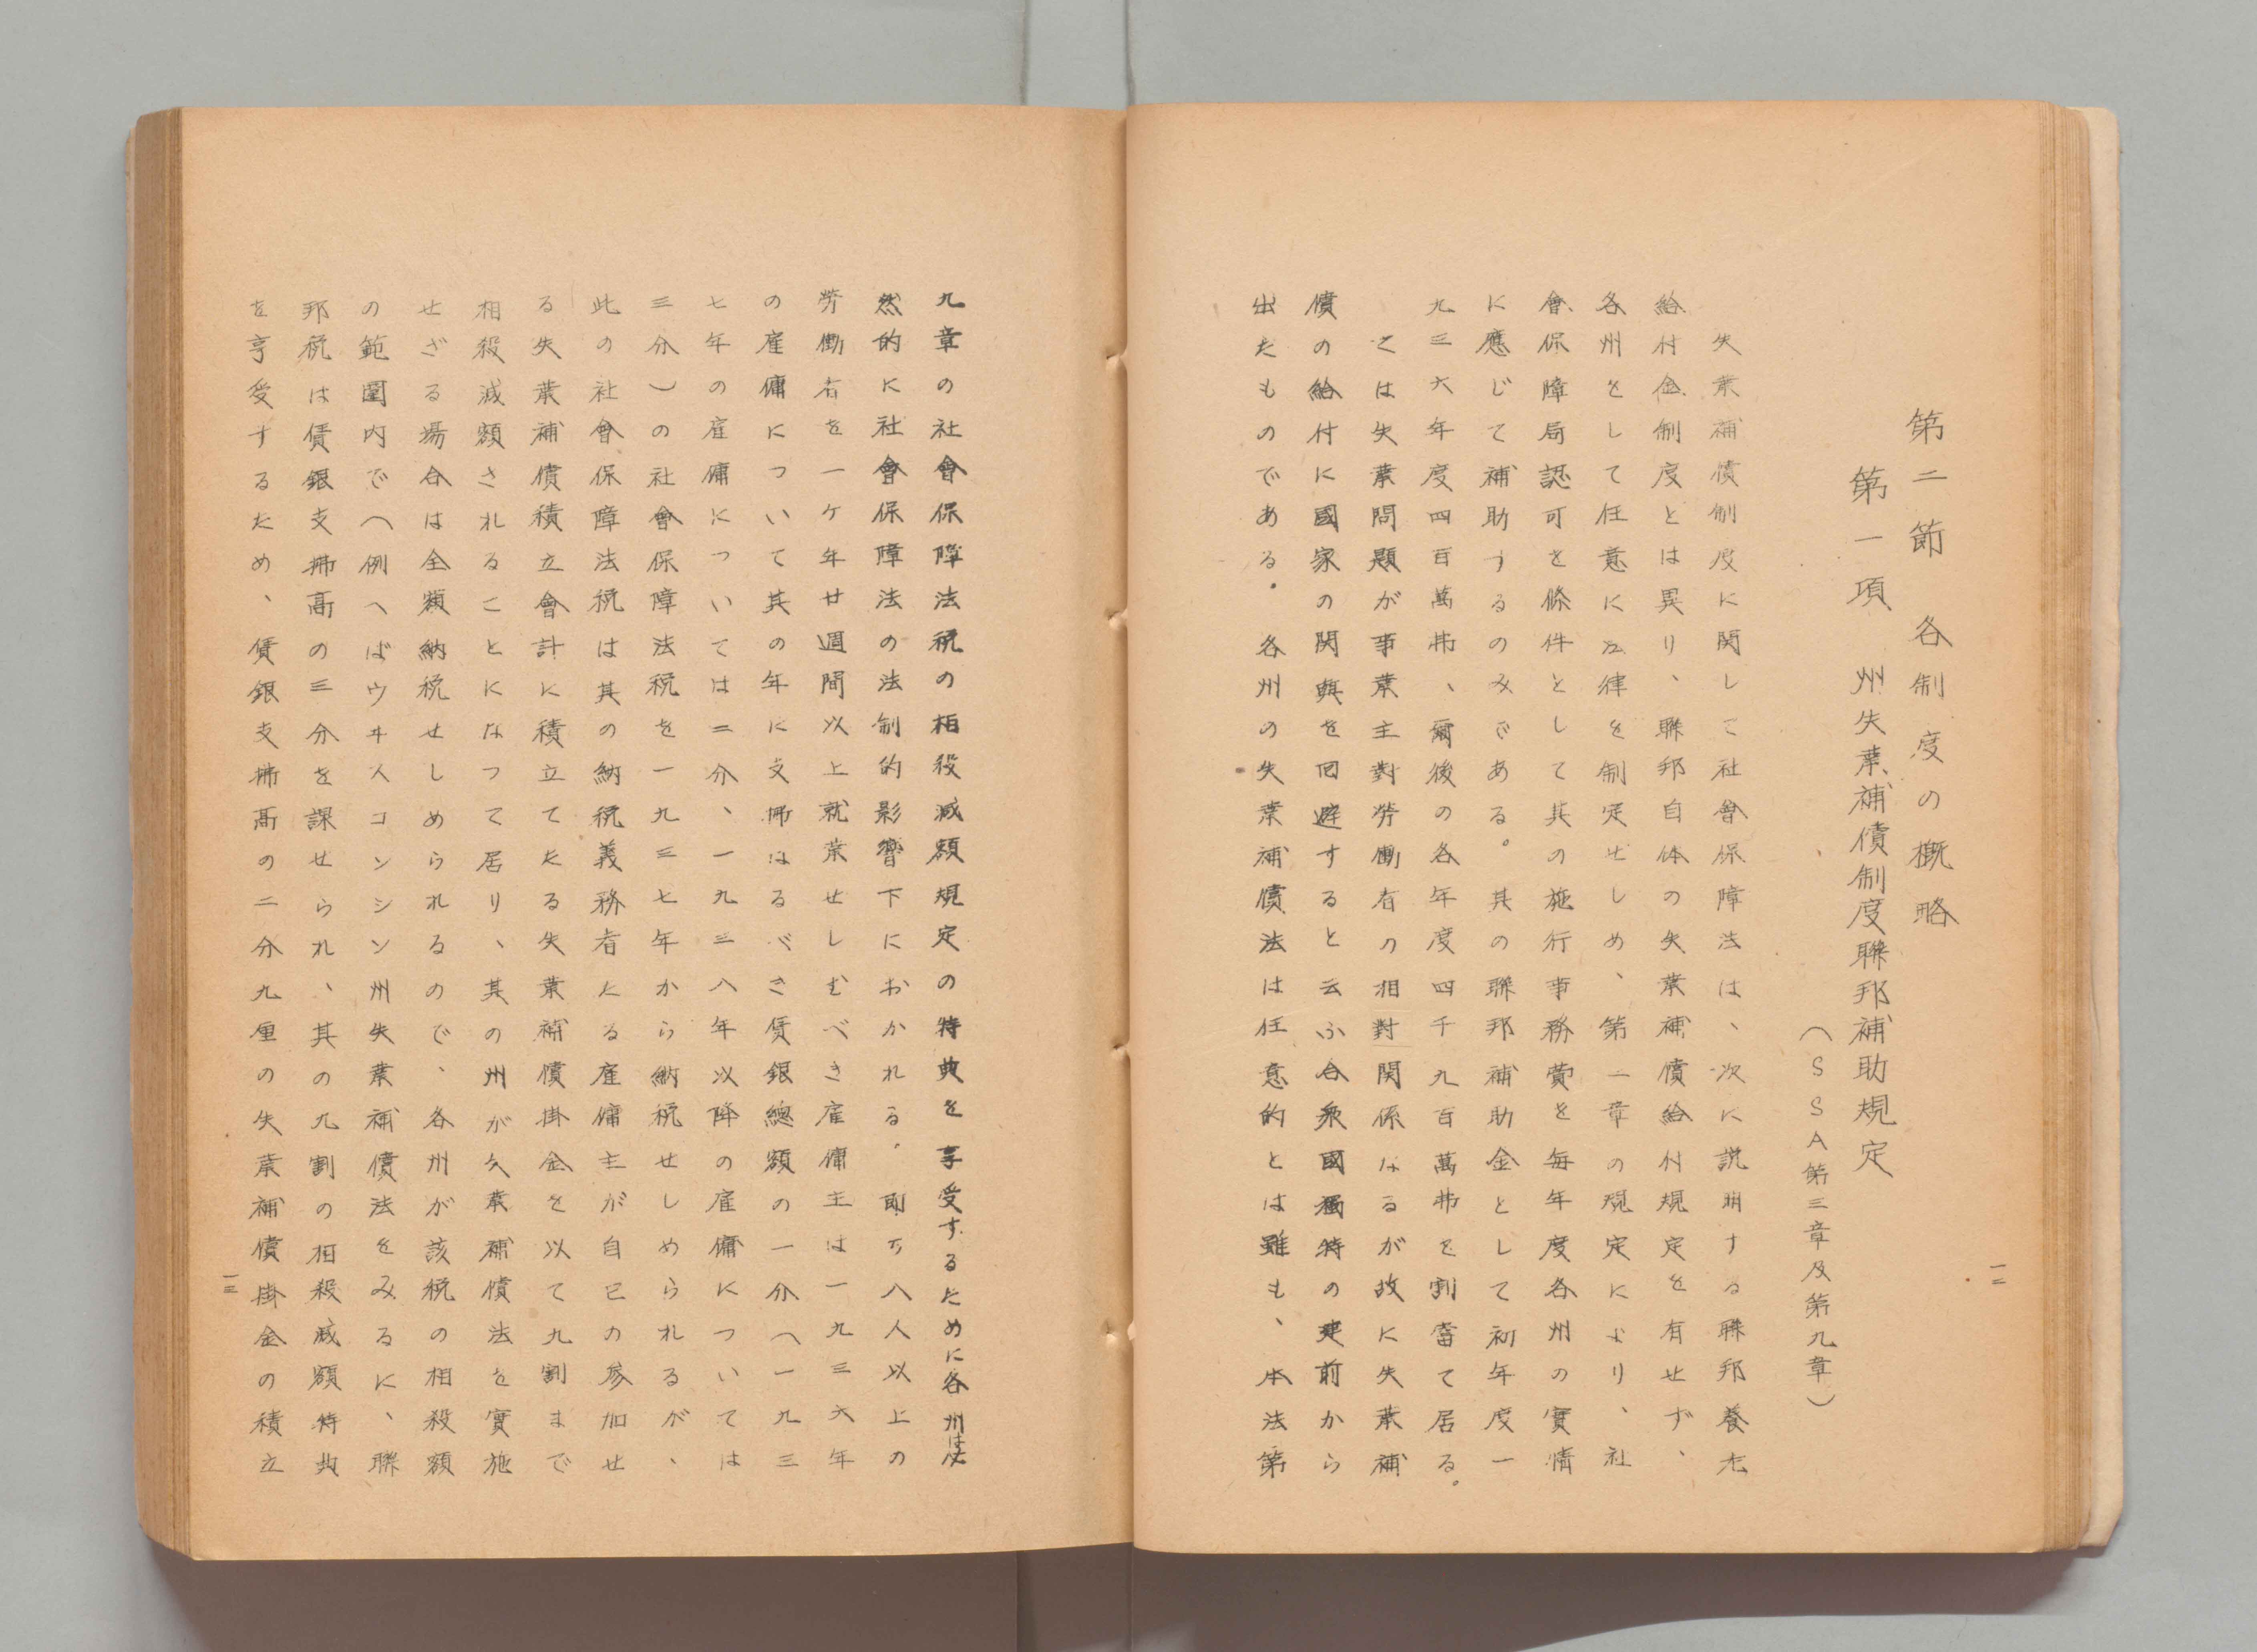 第二節　各制度の概略
第一項　州失業補償制度聯邦補助規定
（ＳＳＡ第三章及第九章）
失業補償制度に関して社會保障法は、次に説明する聯邦養老
給付金制度とは異り、聯邦自体の失業補償給付規定を有せず、
各州をして任意に法律を制定せしめ、第一章の規定により、社
會保障局認可を條件として其の施行事務費を毎年度各州の實情
に應じて補助するのみである。其の聯邦補助金として初年度一
九三六年度四百萬弗、爾後の各年度四千九百萬弗を割當て居る。
之は失業問題が事業主對労働者の相對関係なるが故に失業補
償の給付に國家の関與を回避すると云ふ合衆國獨特の建前から
出たものである。各州の失業補償法は任意的とは雖も、本法第
一二
九章の社會保障法税の相殺減額規定の特典を享受するために各州は必
然的に社會保障法の法制的影響下におかれる。即ち八人以上の
労働者を一ケ年廿週間以上就業せしむべき雇傭主は一九三六年
の雇傭について其の年に支拂はるべき賃銀總額の一分（一九三
七年の雇傭については二分、一九三八年以降の雇傭については
三分）の社會保障法税を一九三七年から納税せしめられるが、
此の社會保障法税は其の納税義務者たる雇傭主が自己の参加せ
る失業補償積立會計に積立てたる失業補償掛金を以て九割まで
相殺減額されることになつて居り、其の州が久業補償法を實施
せざる場合は全額納税せしめられるので、各州が該税の相殺額
の範圍内で（例へばウヰスコンシン州失業補償法をみるに、聯
邦税は賃銀支拂高の三分を課せられ、其の九割の相殺減額特典
を享受するため、賃銀支拂高の二分九厘の失業補償掛金の積立
一三